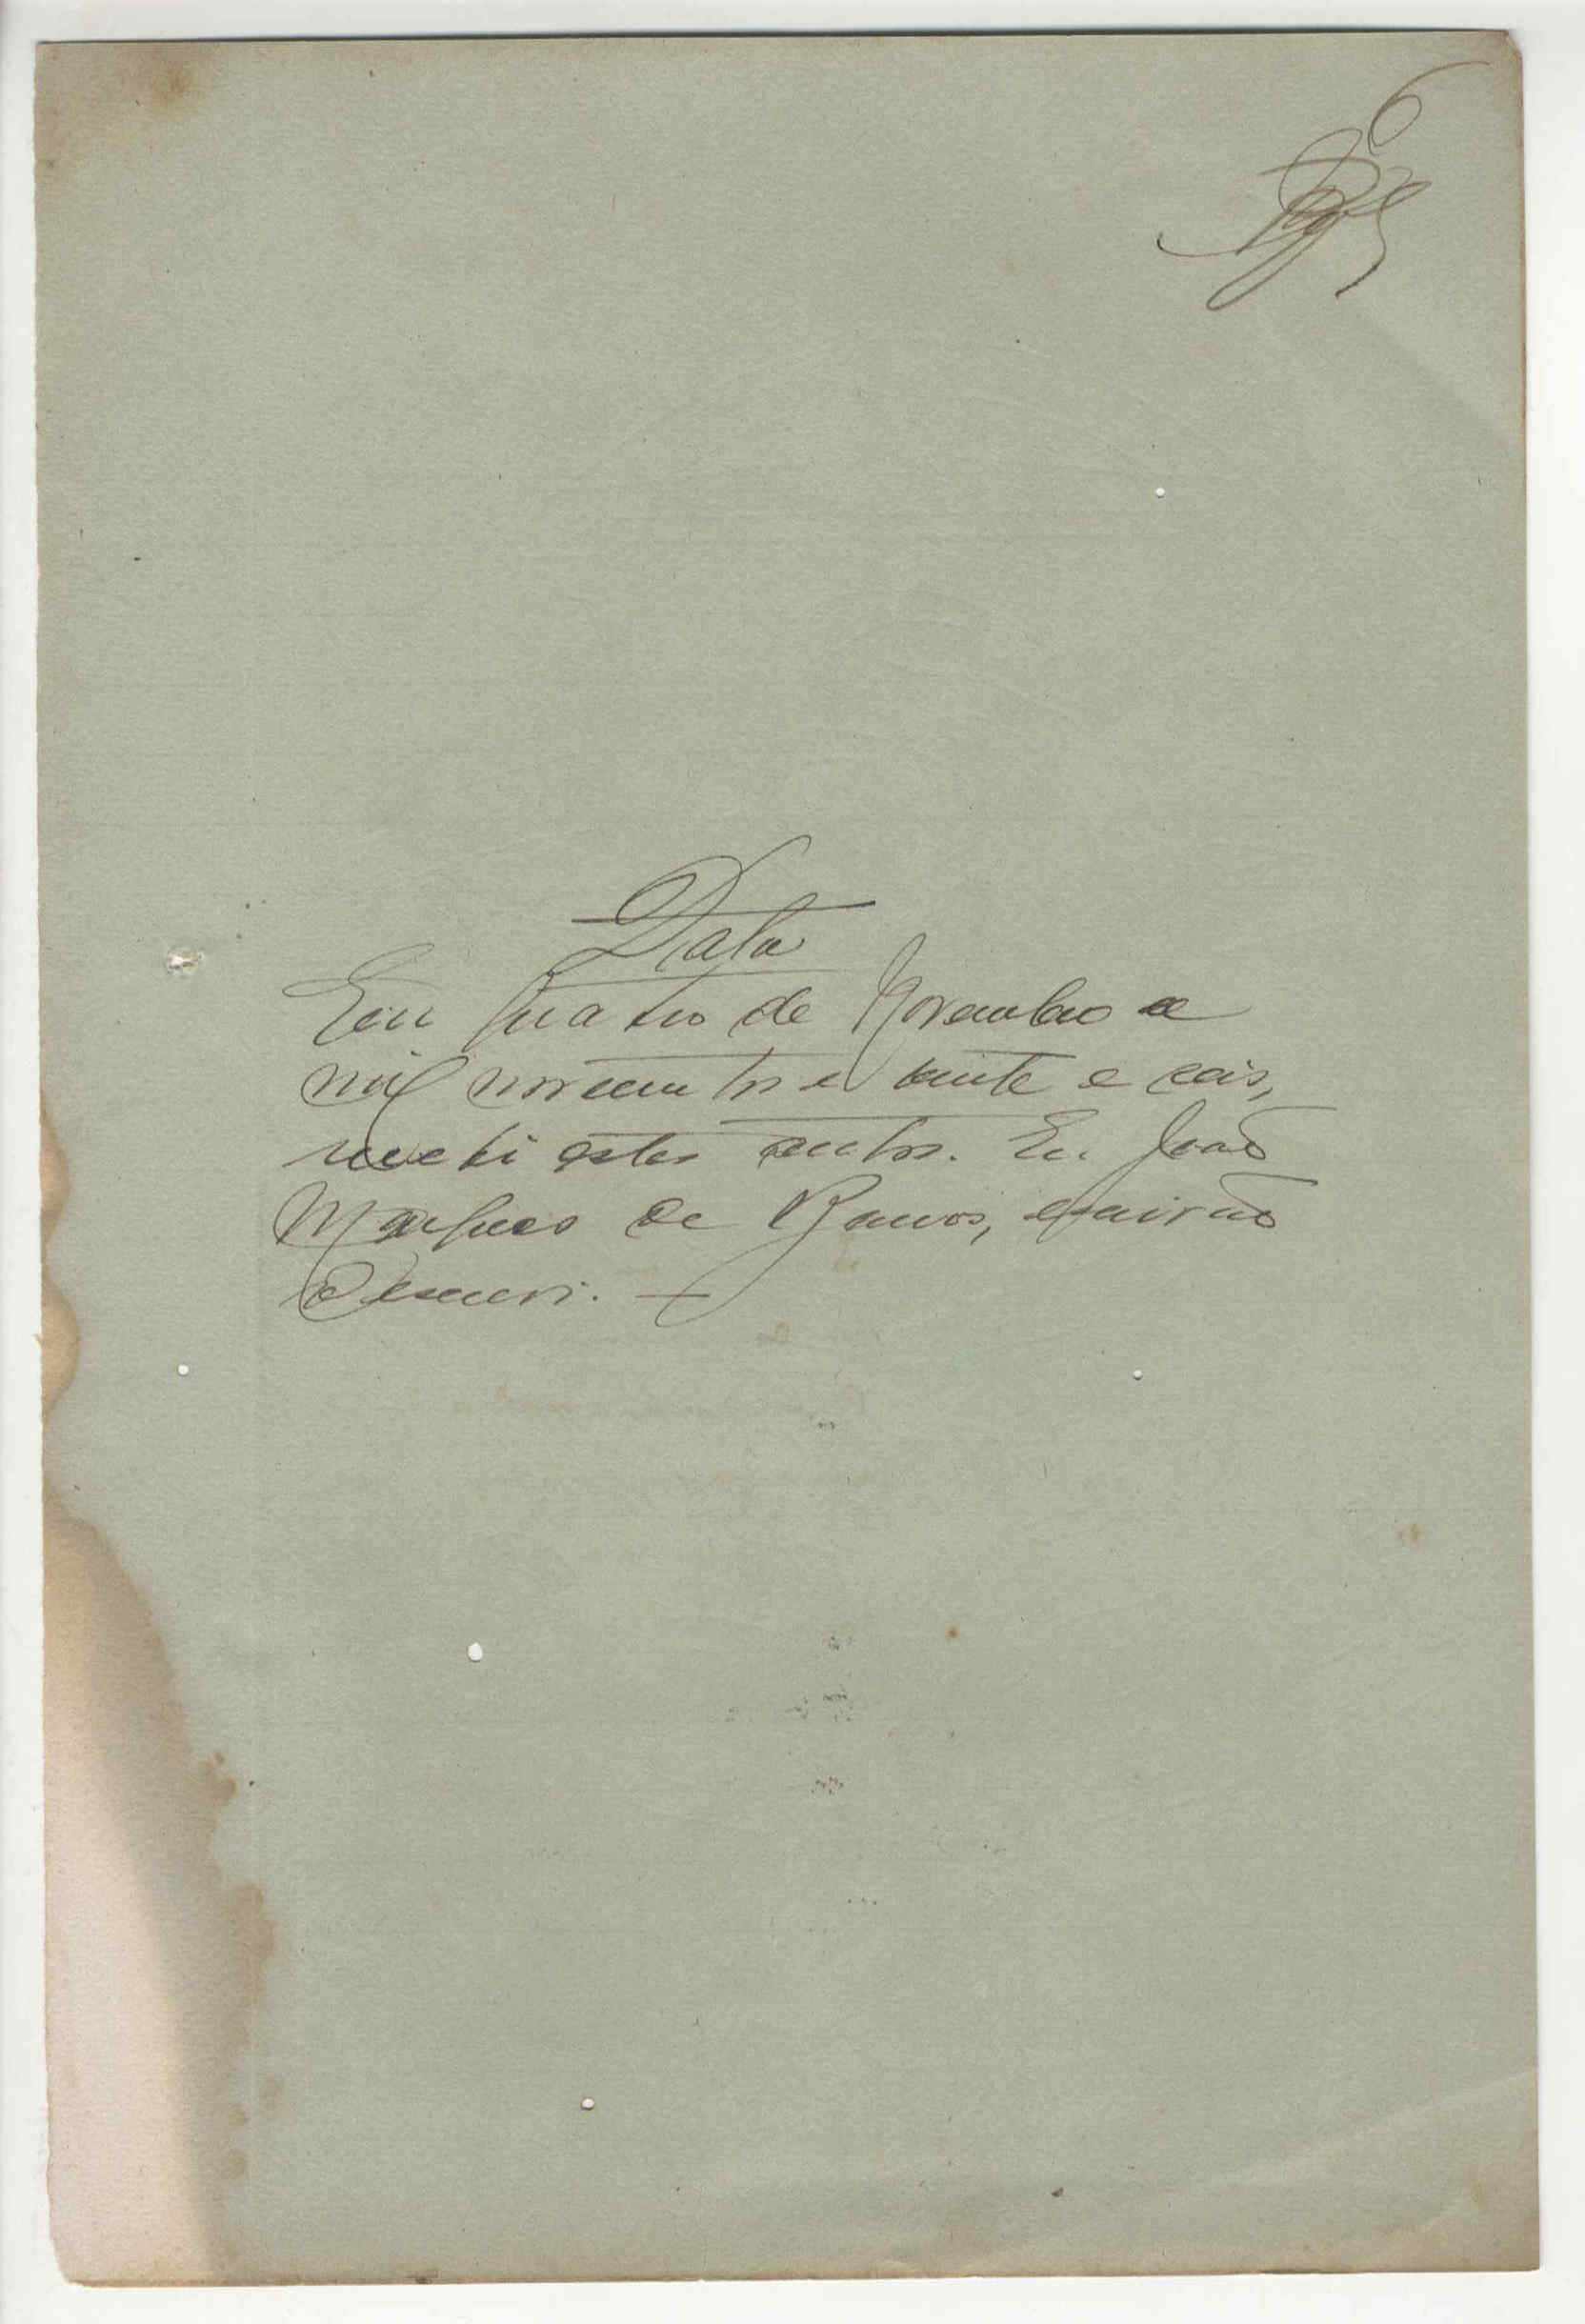 6
Data
Em quatro de Novembro de
mil novecentos e vinte e seis,
recebi estes autos. Eu João
Marques de Barros, escrivão
o escrevi.